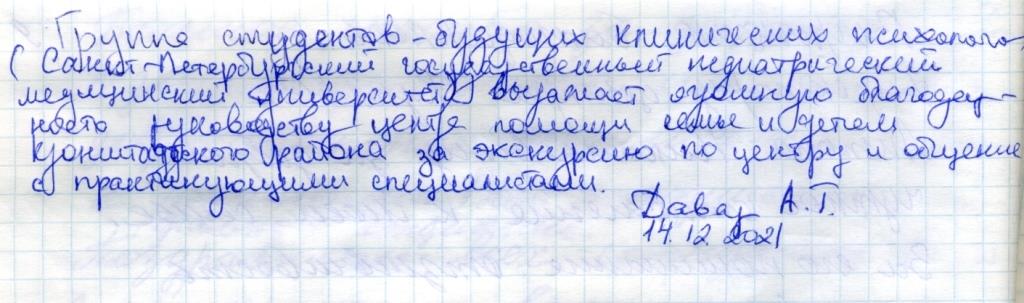 Группа студентов - будущих клинических психолого
( Санкт-Петербургский государственный педиатрический
медицинский Университет) выражает огромную благодар-
ность руководству центра помощи семье и детям
Кронштадского района за экскурсию по центру и общение
с практикующими специалистами.
А.Г.
14.12 2021